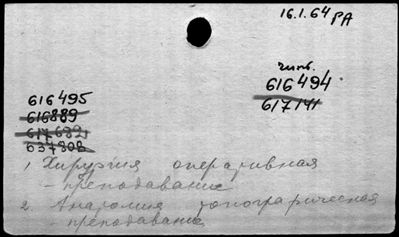 16.1.64 РА
чит.
616494
617141
616495
616889
617682
637808
1. Хирургия оперативная
- преподавание
2. Анатомия топографическая
- преподавание